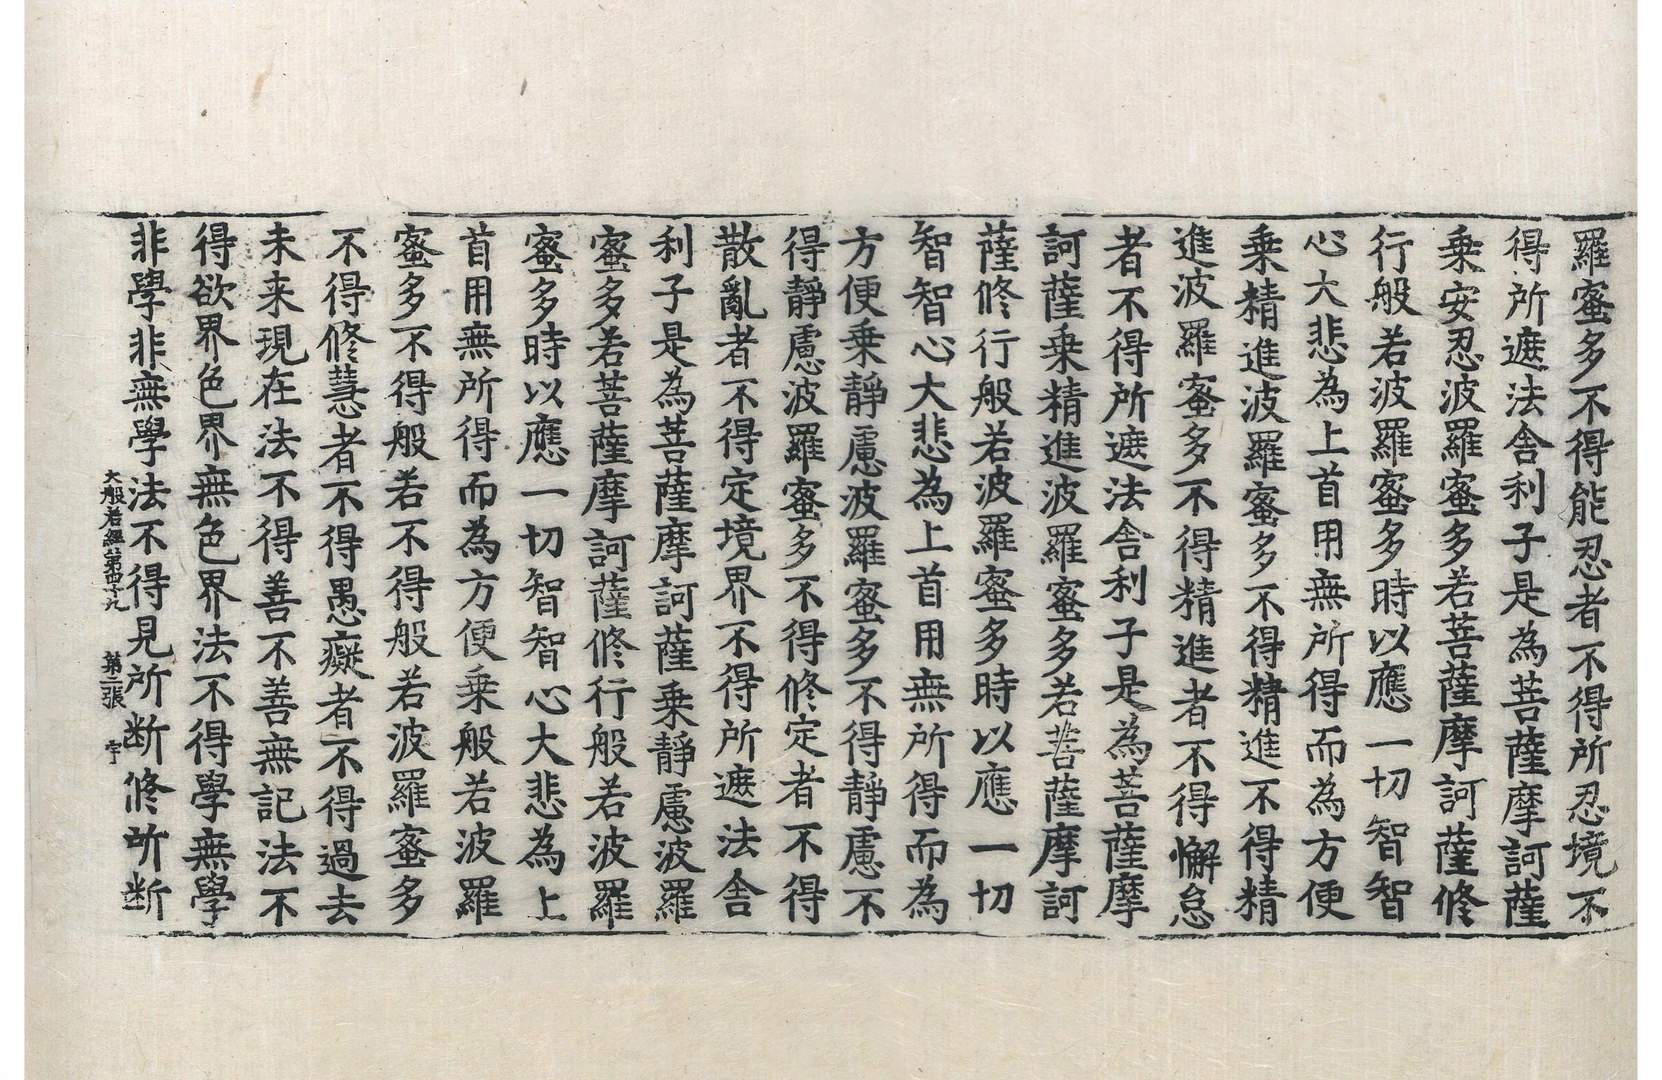 羅蜜多不得能忍者不得所忍境不
得所遮法舍利子是為菩薩摩訶薩
乗安忍波羅蜜多若菩薩摩訶薩修
行般若波羅蜜多時以應一切智智
心大悲為上首用無所得而為方便
乗精進波羅蜜多不得精進不得精
進波羅蜜多不得精進者不得懈怠
者不得所遮法舍利子是為菩薩摩
訶薩乗精進波羅蜜多若菩薩摩訶
薩修行般若波羅蜜多時以應一切
智智心大悲為上首用無所得而為
方便乗靜慮波羅蜜多不得靜慮不
得靜慮波羅蜜多不得修定者不得
散亂者不得定境界不得所遮法舍
利子是為菩薩摩訶薩乗靜慮波羅
蜜多若菩薩摩訶薩修行般若波羅
蜜多時以應一切智智心大悲為上
首用無所得而為方便乗般若波羅
蜜多不得般若不得般若波羅蜜多
不得修慧者不得愚癡者不得過去
未来現在法不得善不善無記法不
得欲界色界無色界法不得學無學
非學非無學法不得見所断修所断
大般若經第四十九　第二張　宇